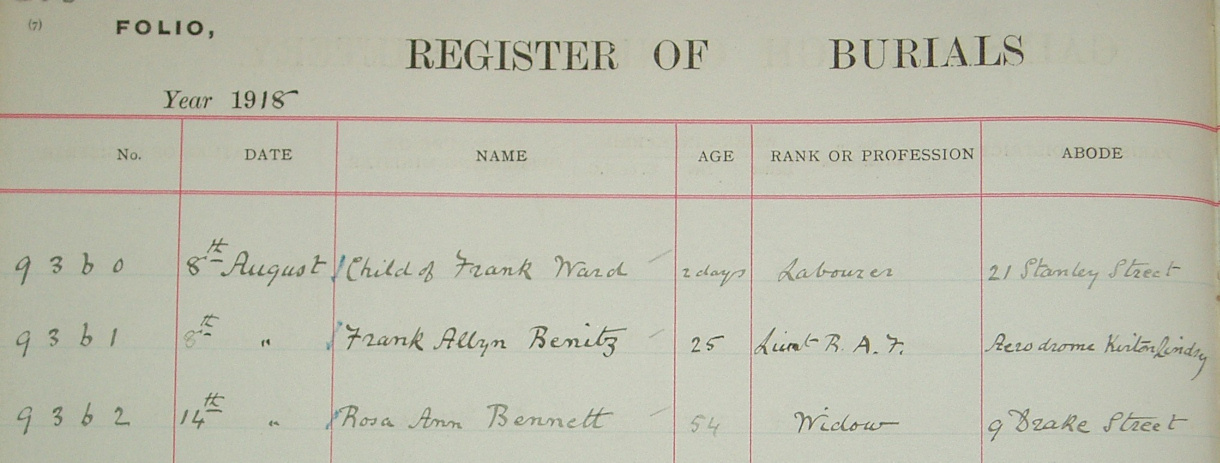 (7) FOLIO,
REGISTER OF BURIALS
Year 1918
No. DATE NAME AGE RANK OR PROFESSION ABODE
9360 8th August Child of Frank Ward 2 days Labourer 21 Stanley Street
9361 8th " Frank Allyn Benitz 25 Lieut R. A. F. Aerodrome Kirton Lindsey
9362 14th " Rosa Ann Bennett 54 Widow 9 Drake Street